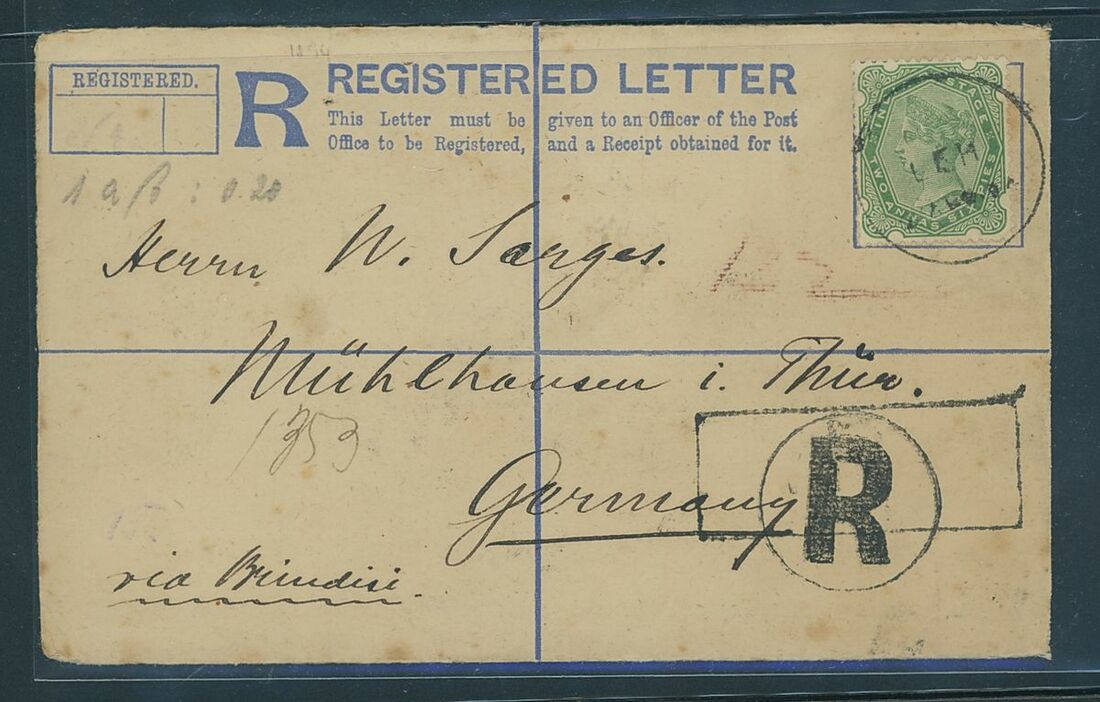 REGISTERED.
R
REGISTERED LETTER
This Letter must be given to an Officer of the Post
Office to be Registered, and a Receipt obtained for it.
TWO ANNAS SIX PIES
Herrn W. Sarges.
Mühlhausen i. Thür.
1353
Germany
R
via Brindisi.